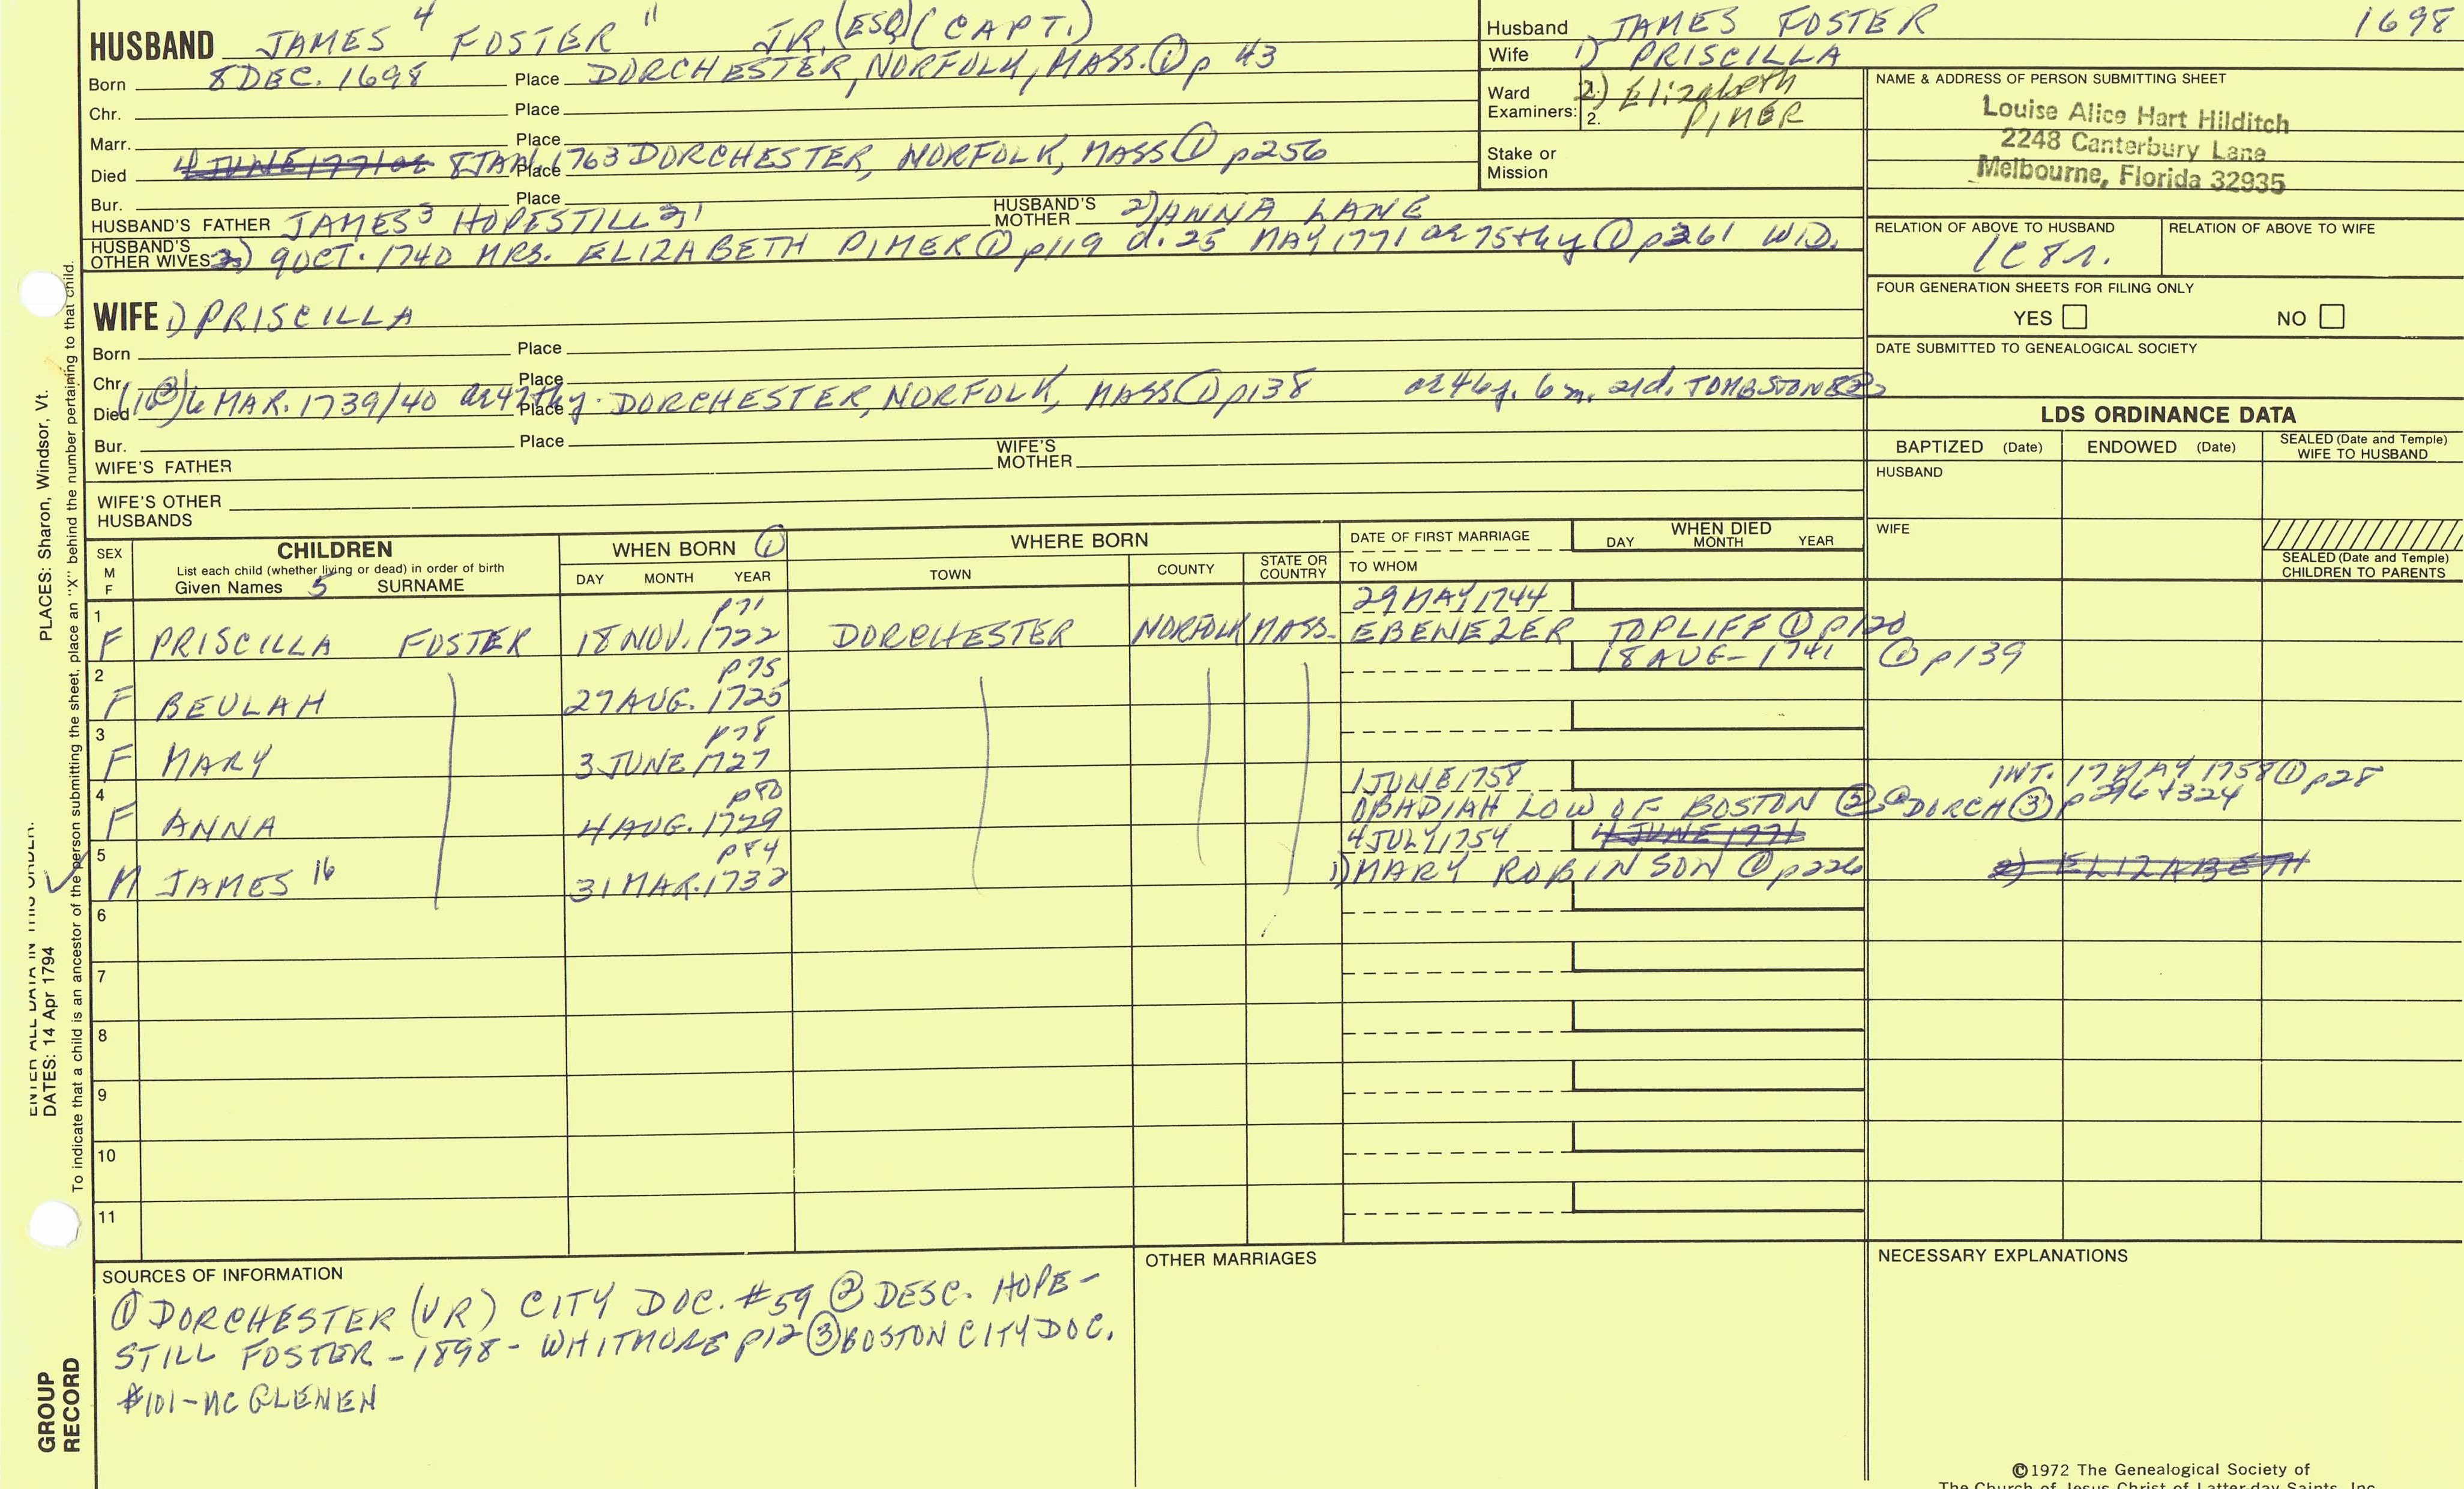 HUSBAND JAMES 4 FOSTER 11 JR. (ESQ) (CAPT.)
Born 8 DEC. 1698 Place DORCHESTER, NORFOLK, MASS. ① p 43
Chr. Place
Marr. Place
Died 4 JUNE 1771 or 8 JAN. 1763 Place DORCHESTER, NORFOLK, MASS ① p256
Bur. Place
HUSBAND'S FATHER JAMES 3 HOPESTILL 2, 1 HUSBAND'S MOTHER 2) ANNA LANE
HUSBAND'S OTHER WIVES 2) 9 OCT. 1740 MRS. ELIZABETH PIMER ① p119 d. 25 MAY 1771 ae 75thy ① p261 WID.
Husband JAMES FOSTER 1698
Wife 1) PRISCILLA
Ward Examiners: 1. 2.
2) Elizabeth PIMER
Stake or Mission
NAME & ADDRESS OF PERSON SUBMITTING SHEET
Louise Alice Hart Hilditch
2248 Canterbury Lane
Melbourne, Florida 32935
RELATION OF ABOVE TO HUSBAND RELATION OF ABOVE TO WIFE
1C 8r.
FOUR GENERATION SHEETS FOR FILING ONLY
YES NO
DATE SUBMITTED TO GENEALOGICAL SOCIETY
WIFE 1) PRISCILLA
Born Place
Chr. Place
Died 6 MAR. 1739/40 ae 47thy. Place DORCHESTER, NORFOLK, MASS ① p138 ae 46y. 6m. 21d. TOMBSTONE ②
Bur. Place
WIFE'S FATHER WIFE'S MOTHER
WIFE'S OTHER HUSBANDS
LDS ORDINANCE DATA
BAPTIZED (Date) ENDOWED (Date) SEALED (Date and Temple) WIFE TO HUSBAND
HUSBAND
WIFE
SEALED (Date and Temple) CHILDREN TO PARENTS
SEX M F
CHILDREN
List each child (whether living or dead) in order of birth
Given Names 5 SURNAME
WHEN BORN ①
DAY MONTH YEAR
WHERE BORN
TOWN COUNTY STATE OR COUNTRY
DATE OF FIRST MARRIAGE
TO WHOM
WHEN DIED
DAY MONTH YEAR
p71 29 MAY 1744
1 F PRISCILLA FOSTER 18 NOV. 1722 DORCHESTER NORFOLK MASS. EBENEZER TOPLIFF ① p120
p75 18 AUG- 1741 ① p139
2 F BEULAH 27 AUG. 1725
p78
3 F MARY 3 JUNE 1727
p80 1 JUNE 1758 INT. 17 MAY 1758 ① p28
4 F ANNA 4 AUG. 1729 OBADIAH LOW OF BOSTON ② @ DORCH ③ p296+324
p84 4 JULY 1754 4 JUNE 1771
5 M JAMES 16 31 MAR. 1732 1) MARY ROBINSON ① p226 2) ELIZABETH
6
7
8
9
10
11
SOURCES OF INFORMATION
① DORCHESTER (VR) CITY DOC. #59 ② DESC. HOPE-
STILL FOSTER - 1898 - WHITMORE p12 ③ BOSTON CITY DOC.
#101 - MC GLENEN
OTHER MARRIAGES
NECESSARY EXPLANATIONS
©1972 The Genealogical Society of
The Church of Jesus Christ of Latter-day Saints, Inc.
PLACES: Sharon, Windsor, Vt.
ENTER ALL DATA IN THIS ORDER:
DATES: 14 Apr 1794
To indicate that a child is an ancestor of the person submitting the sheet, place an "X" behind the number pertaining to that child.
GROUP RECORD